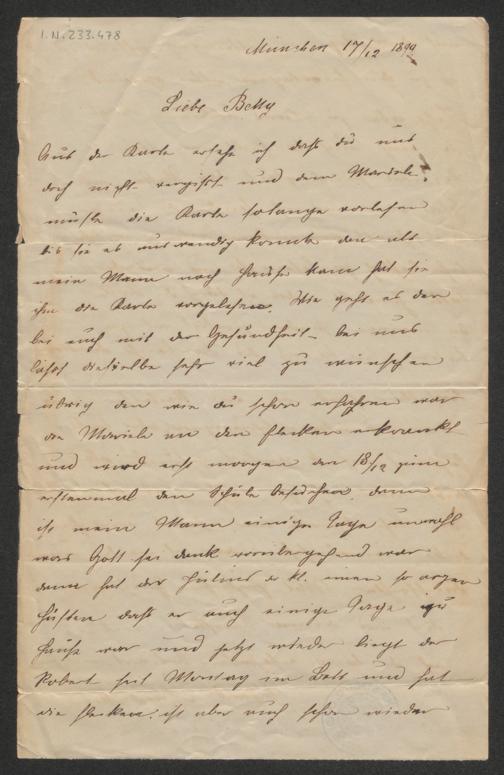 I.N. 233.478
München 17/12 1899
Liebe Betty
Aus der Karte ersehe ich daß du uns
doch nicht vergißt und dem Mariele
mußte die Karte solange vorlesen
bis sie es auswendig konnte den als
mein Mann nach Hause kam hat sie
ihm die Karte vorgelesen. Wie geht es den
bei euch mit der Gesundheit – bei uns
läßt dieselbe sehr viel zu wünschen
übrig den wie du schon erfahren war
die Mariele an den Flecken erkrankt
und wird erst morgen den 18/12 zum
erstenmal den Schule besuchen, dann
ist mein Mann einige Tage unwohl
was Gott sei dank vorübergehend war
dann hat der Julius kl. einen so argen
Husten daß er auch einige Tage zu
Hause war und jetzt wieder liegt der
Robert seit Montag im Bett und hat
die Flecken, ist aber auch schon wieder